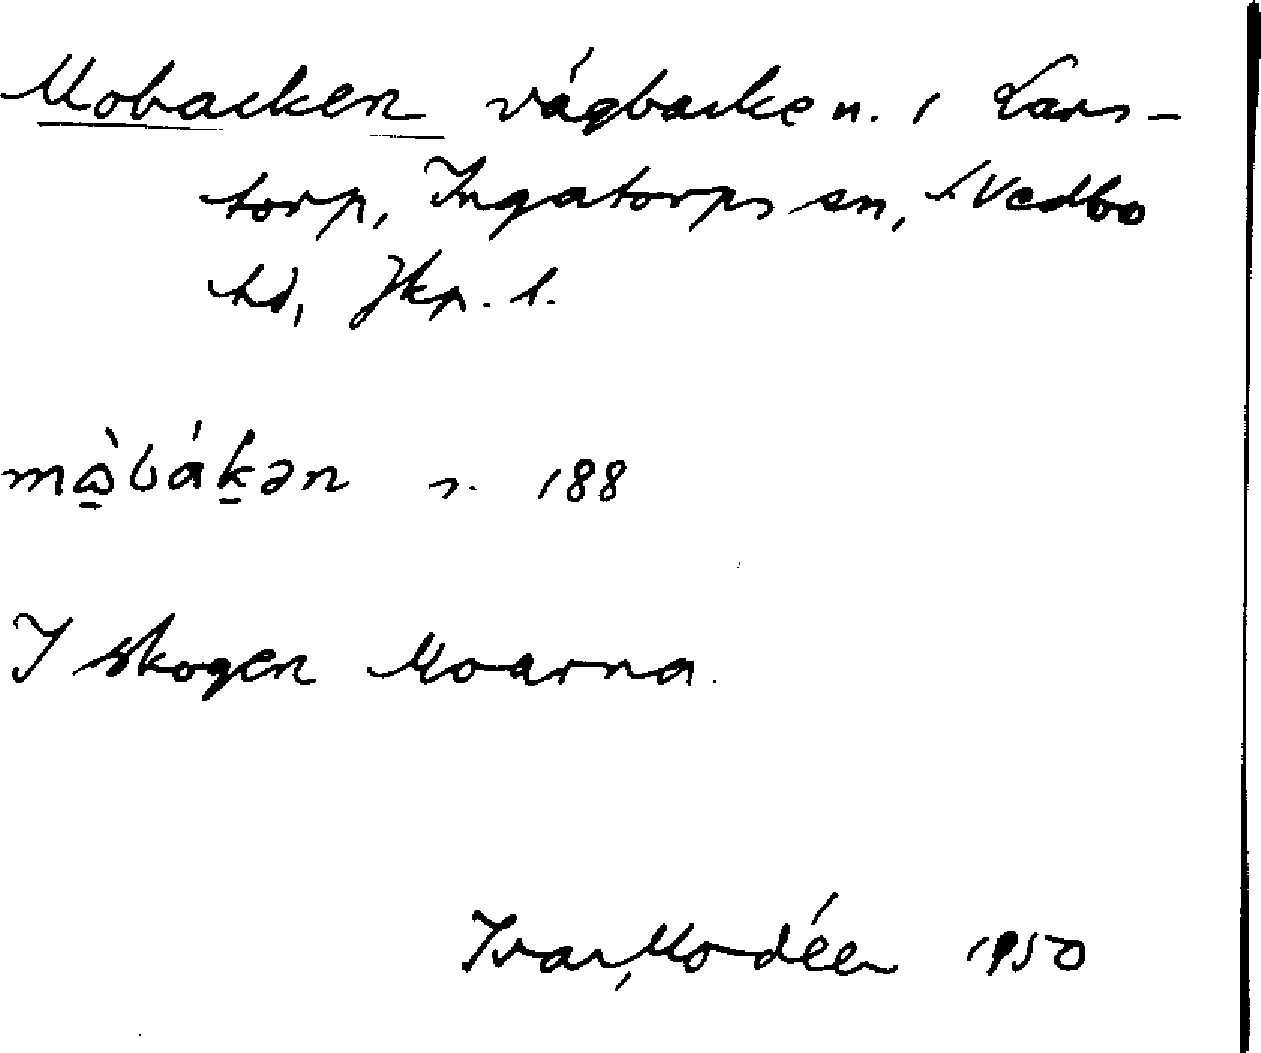 Mobacken vägbacke n. i Lars-
torp, Ingatorps sn, S Vedbo
hd, Jkp. l.
mɷ̀bákən s. 188
I skogen Moarna.
Ivar Modéer 1950